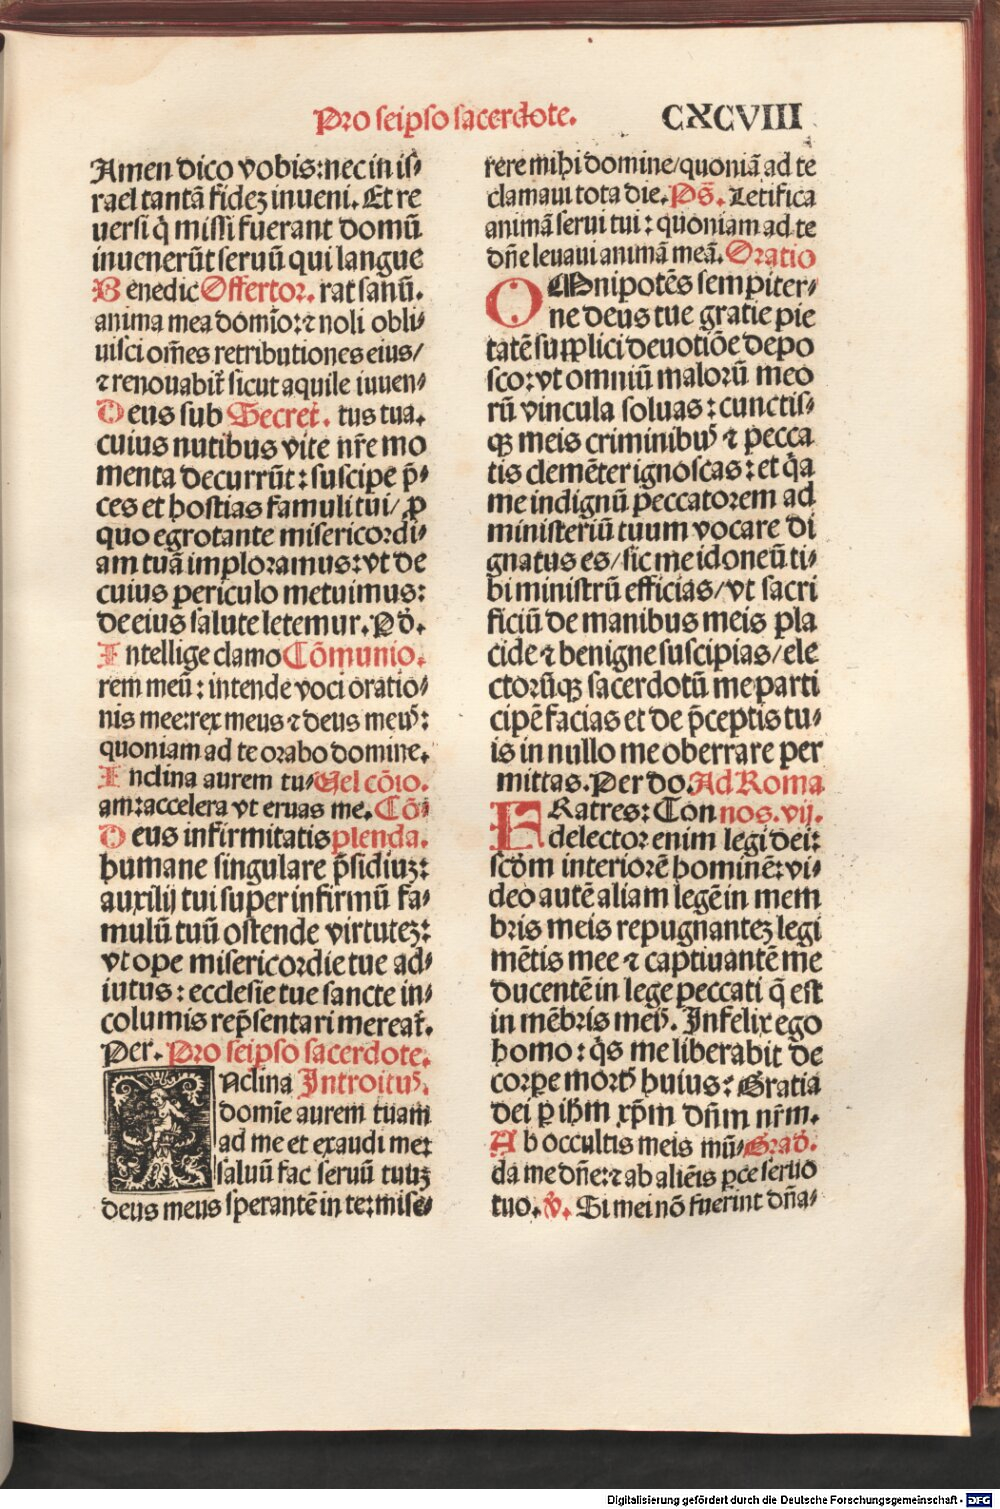 Pro seipso sacerdote. CXCVIII
Amen dico vobis: nec in is⸗
rael tantã fidez inueni. Et re
uersi q̃ missi fuerant domũ
inuenerũt seruũ qui langue
Benedic Offertor. rat sanũ.
anima mea domĩo: ⁊ noli obli⸗
uisci om̃es retributiones eius/
⁊ renouabit̃ sicut aquile iuuen⸗
Deus sub Secret̃. tus tua.
cuius nutibus vite nr̃e mo
menta decurrũt: suscipe p̃⸗
ces et hostias famuli tui/ ꝓ
quo egrotante misericordi⸗
am tuã imploramus: vt de
cuius periculo metuimus:
de eius salute letemur. P d̾.
Intellige clamo Cõmunio.
rem meũ: intende voci oratio⸗
nis mee: rex meus ⁊ deus meuꝰ:
quoniam ad te orabo domine.
Inclina aurem tu⸗ Vel cõio.
am: accelera vt eruas me. Cõ⸗
Deus infirmitatis plenda.
humane singulare p̃sidiuz:
auxilij tui super infirmũ fa⸗
mulũ tuũ ostende virtutez:
vt ope misericordie tue ad⸗
iutus: ecclesie tue sancte in⸗
columis rep̃sentari mereat̃.
Per. Pro seipso sacerdote.
INclina Introituꝰ.
domĩe aurem tuam
ad me et exaudi me:
saluũ fac seruũ tuuz
deus meus sperantẽ in te: mise⸗
rere mihi domine/ quoniã ad te
clamaui tota die. Ps̃. Letifica
animã serui tui: quoniam ad te
dñe leuaui animã meã. Oratio
OMnipotẽs sempiter⸗
ne deus tue gratie pie
tatẽ supplici deuotiõe depo
sco: vt omniũ malorũ meo
rũ vincula soluas: cunctis⸗
qꝫ meis criminibuꝰ ⁊ pecca
tis clemẽter ignoscas: et q̃a
me indignũ peccatorem ad
ministeriũ tuum vocare di
gnatus es/ sic me idoneũ ti⸗
bi ministrũ efficias/ vt sacri
ficiũ de manibus meis pla
cide ⁊ benigne suscipias/ ele
ctorũqꝫ sacerdotũ me parti
cipẽ facias et de p̃ceptis tu⸗
is in nullo me oberrare per
mittas. Per do. Ad Roma
FRatres: Con nos. vij.
delector enim legi dei:
scd̾m interiorẽ hominẽ: vi⸗
deo autẽ aliam legẽ in mem
bris meis repugnantez legi
mẽtis mee ⁊ captiuantẽ me
ducentẽ in lege peccati q̃ est
in mẽbris meiꝰ. Infelix ego
homo: q̃s me liberabit de
corpe mortꝰ huius: Gratia
dei p ihm̃ xp̃m dñm nr̃m.
Ab occultis meis mũ⸗ Grad̾.
da me dñe: ⁊ ab aliẽis p̱ce seruo
tuo. V̾. Si mei nõ fuerint dña⸗
Digitalisierung gefördert durch die Deutsche Forschungsgemeinschaft - DFG